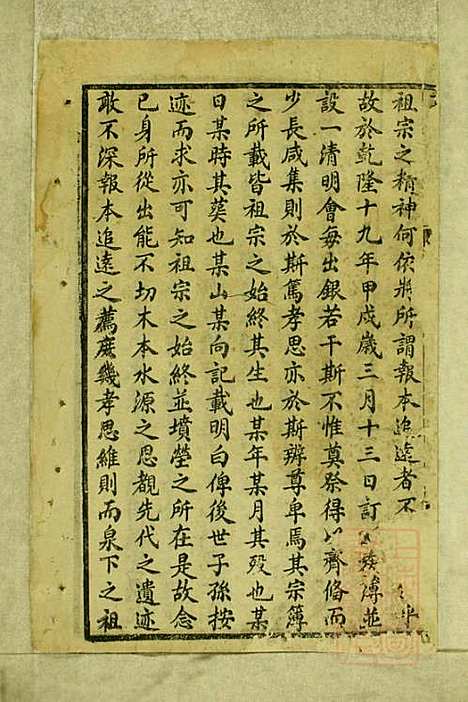 祖宗之精神何依將所謂報本追遠者不
故於乾隆十九年甲戌歲三月十三日訂族傅並
設一清明會每出銀若干斯不惟奠祭得以齊俻而
少長咸集則於斯篤孝思亦於斯辨尊卑焉其宗簿
之所載皆祖宗之始終其生也某年某月其殁也某
日某時其葬也某山某向記載明白俾後世子孫按
迹而求亦可知祖宗之始終並墳塋之所在是故念
已身所從出能不切木本水源之思覩先代之遺迹
敢不深報本追遠之薦庶幾孝思維則而泉下之祖